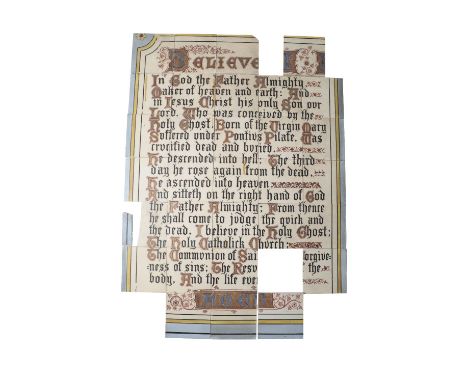 Believe
In God the Father Almighty
Maker of heaven and earth: And
in Jesus Christ his only Son our
Lord. Who was conceived by the
Holy Ghost. Born of the Virgin Mary
Suffered under Pontius Pilate. Was
crucified dead and buried.
He descended into hell: The third
day he rose again from the dead.
He ascended into heaven
And sitteth on the right hand of God
the Father Almighty: From thence
he shall come to judge the quick and
the dead. I believe in the Holy Ghost:
The Holy Catholick Church:
The Communion of Sai orgive-
-ness of sins: The Resu the
body. And the life eve